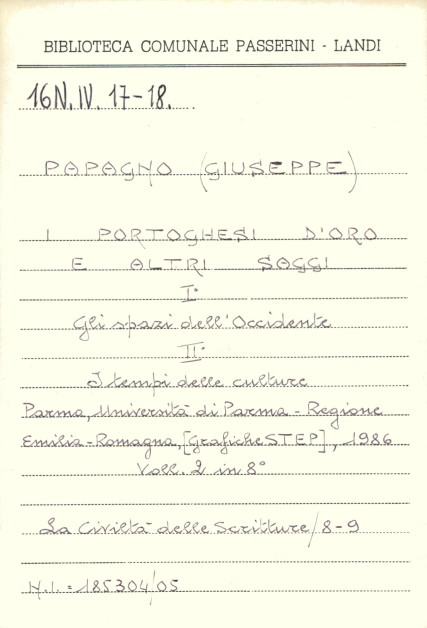 BIBLIOTECA COMUNALE PASSERINI - LANDI
16N.IV. 17-18.
PAPAGNO (GIUSEPPE)
I PORTOGHESI D'ORO
E ALTRI SAGGI
I°
Gli spazi dell'Occidente
II°
I tempi delle culture
Parma, Università di Parma - Regione
Emilia-Romagna, [Grafiche STEP], 1986
Voll. 2 in 8°
La Civiltà delle Scritture/8-9
N.I. = 185304/05